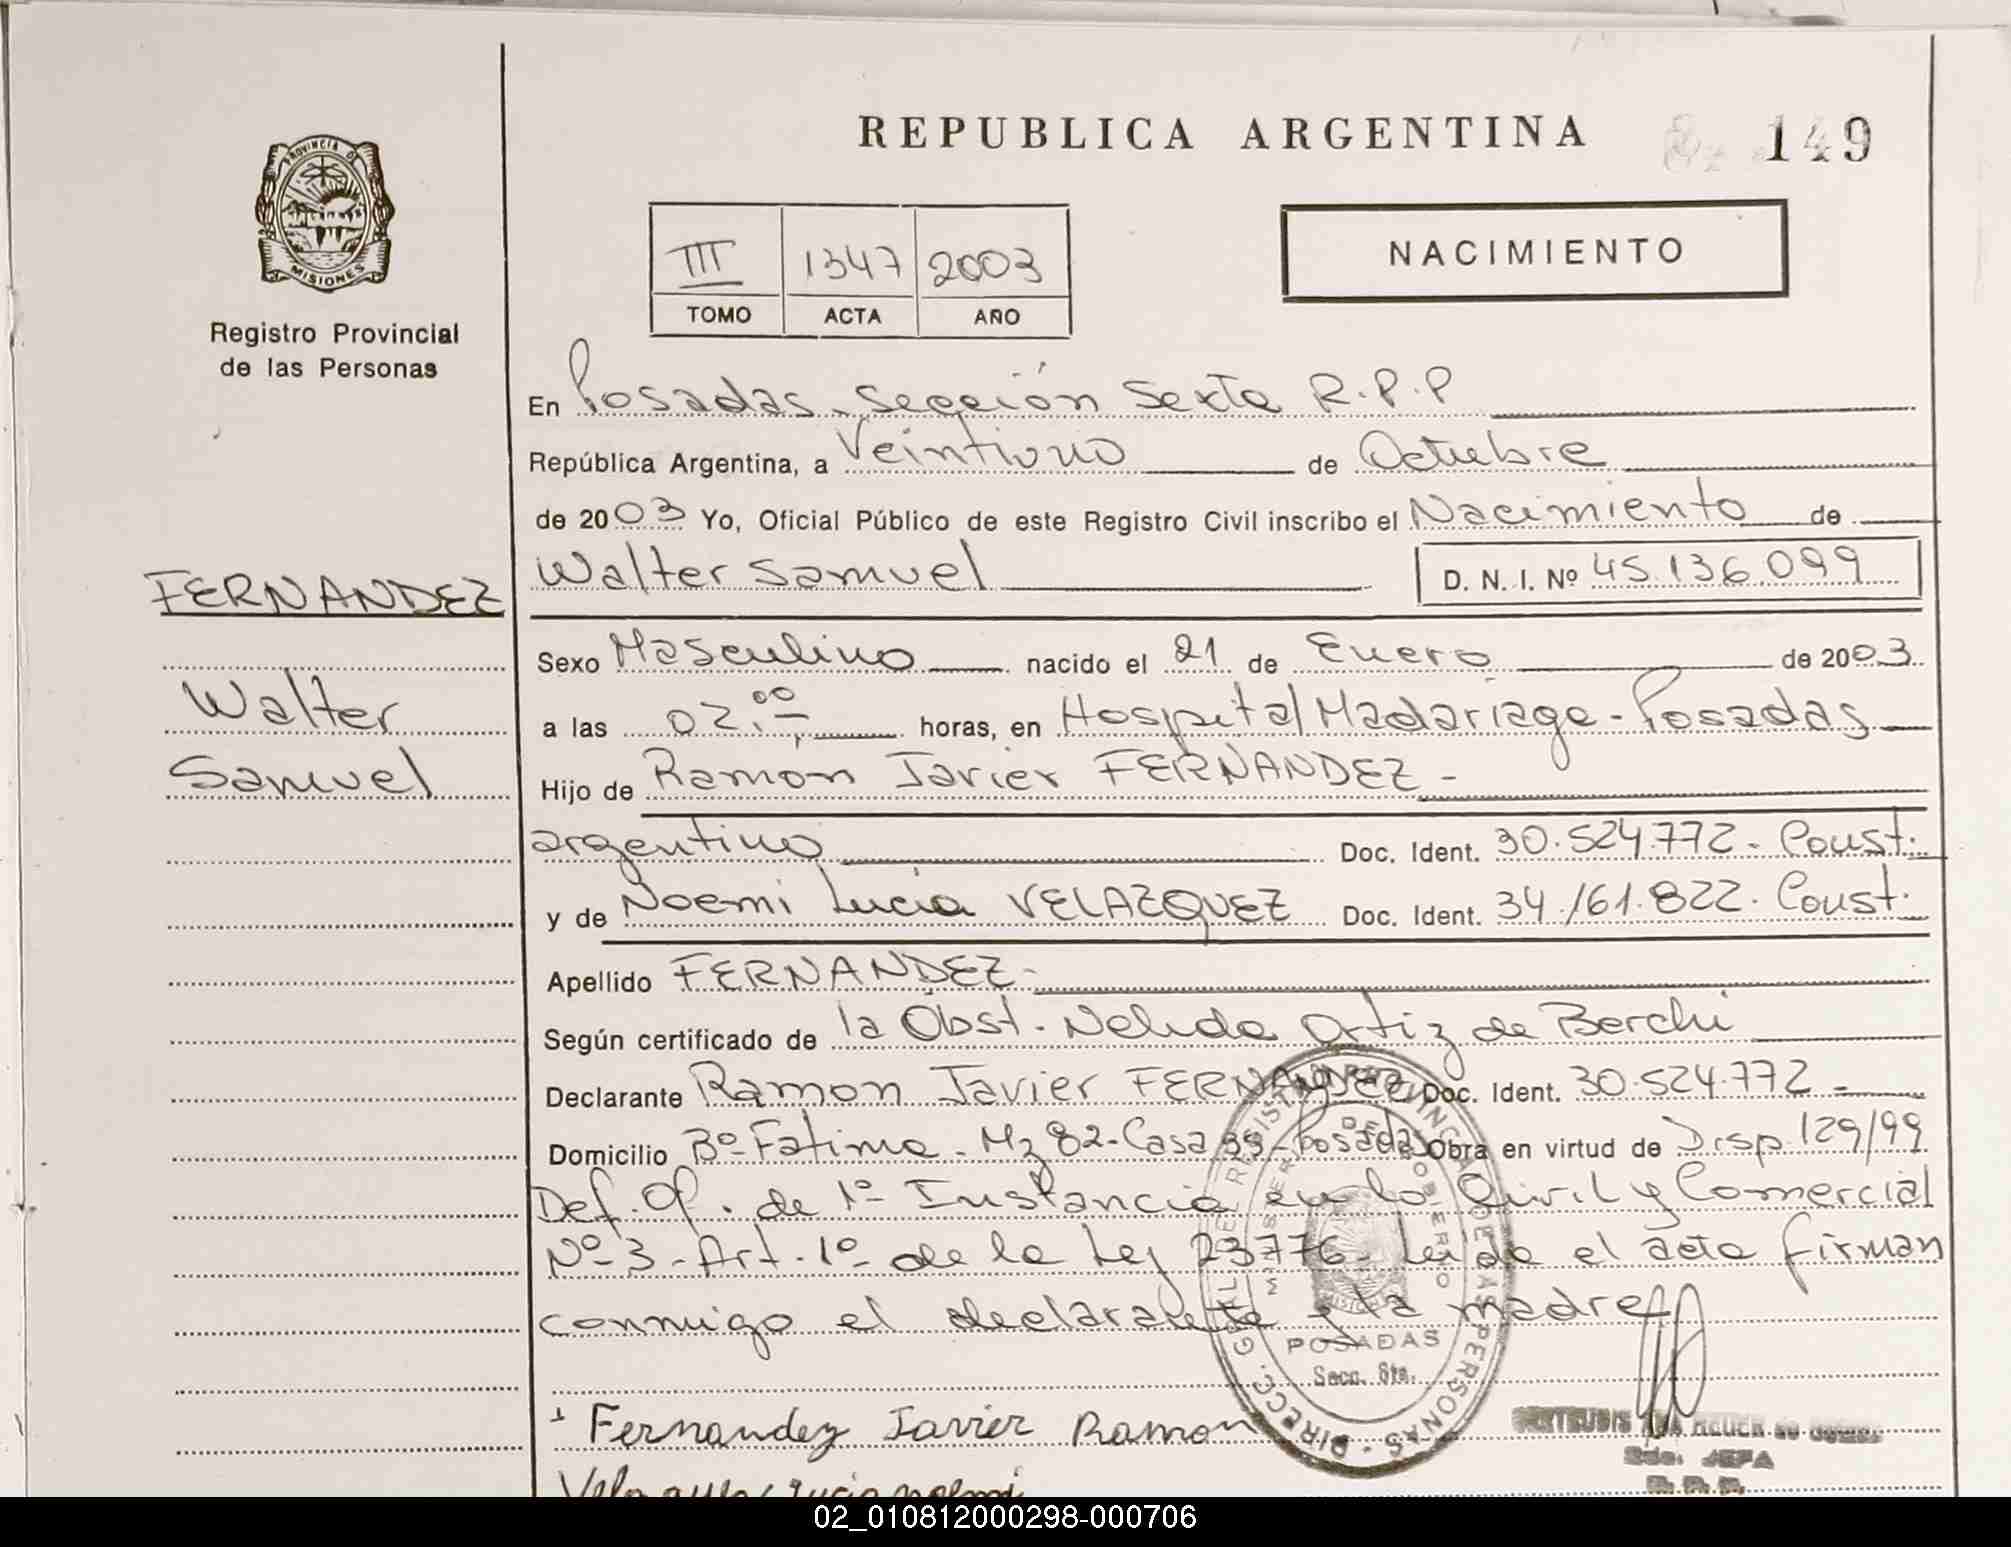 REPUBLICA ARGENTINA
149
PROVINCIA DE
MISIONES
Registro Provincial
de las Personas
NACIMIENTO
III 1347 2003
TOMO ACTA AÑO
En Posadas Sección Sexta R.P.P
República Argentina, a Veintiuno de Octubre
de 2003 Yo, Oficial Público de este Registro Civil inscribo el Nacimiento de
Walter Samuel
D. N. I. Nº 45.136.099
FERNANDEZ
Walter
Samuel
Sexo Masculino nacido el 21 de Enero de 2003
a las 02,00 horas, en Hospital Madariaga - Posadas
Hijo de Ramon Javier FERNANDEZ -
argentino Doc. Ident. 30.524.772 - Const.
y de Noemi Lucia VELAZQUEZ Doc. Ident. 34.161.822. Const.
Apellido FERNANDEZ -
Según certificado de la Obst. Nelida Ortiz de Berchi
Declarante Ramon Javier FERNANDEZ Doc. Ident. 30.524.772 -
Domicilio Bº Fatima - Mz 82 - Casa 39 - Posadas Obra en virtud de Disp. 129/99
Def. Of. de 1º Instancia en lo Civil y Comercial
Nº 3 - Art. 1º de la Ley 23776. Leida el acta firman
conmigo el declarante y la madre
POSADAS
Secc. 6ta.
DIRECC. GRAL. DEL REGISTRO PROVINCIAL DE LAS PERSONAS
Fernandez Javier Ramon
Sdo. JEFA
R.P.P.
02_010812000298-000706